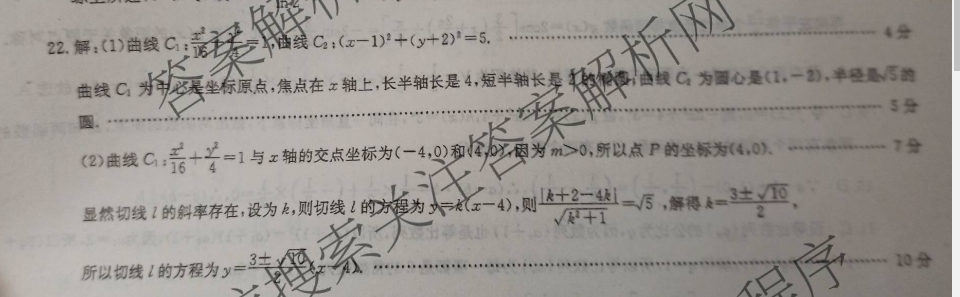 22. 解:(1)曲线 C₁: x²/16 + y²/4 = 1,曲线 C₂:(x-1)²+(y+2)²=5. …… 4分
曲线 C₁ 为中心是坐标原点,焦点在 x 轴上,长半轴长是 4,短半轴长是 2 的椭圆;曲线 C₂ 为圆心是(1,-2),半径是√5的
圆. …… 5分
(2)曲线 C₁: x²/16 + y²/4 = 1 与 x 轴的交点坐标为(-4,0)和(4,0),因为 m>0,所以点 P 的坐标为(4,0). …… 7分
显然切线 l 的斜率存在,设为 k,则切线 l 的方程为 y=k(x-4),则 |k+2-4k|/√(k²+1) = √5,解得 k= (3±√10)/2,
所以切线 l 的方程为 y= (3±√10)/2 (x-4). …… 10分
答案解析
搜索关注答案解析网
程序